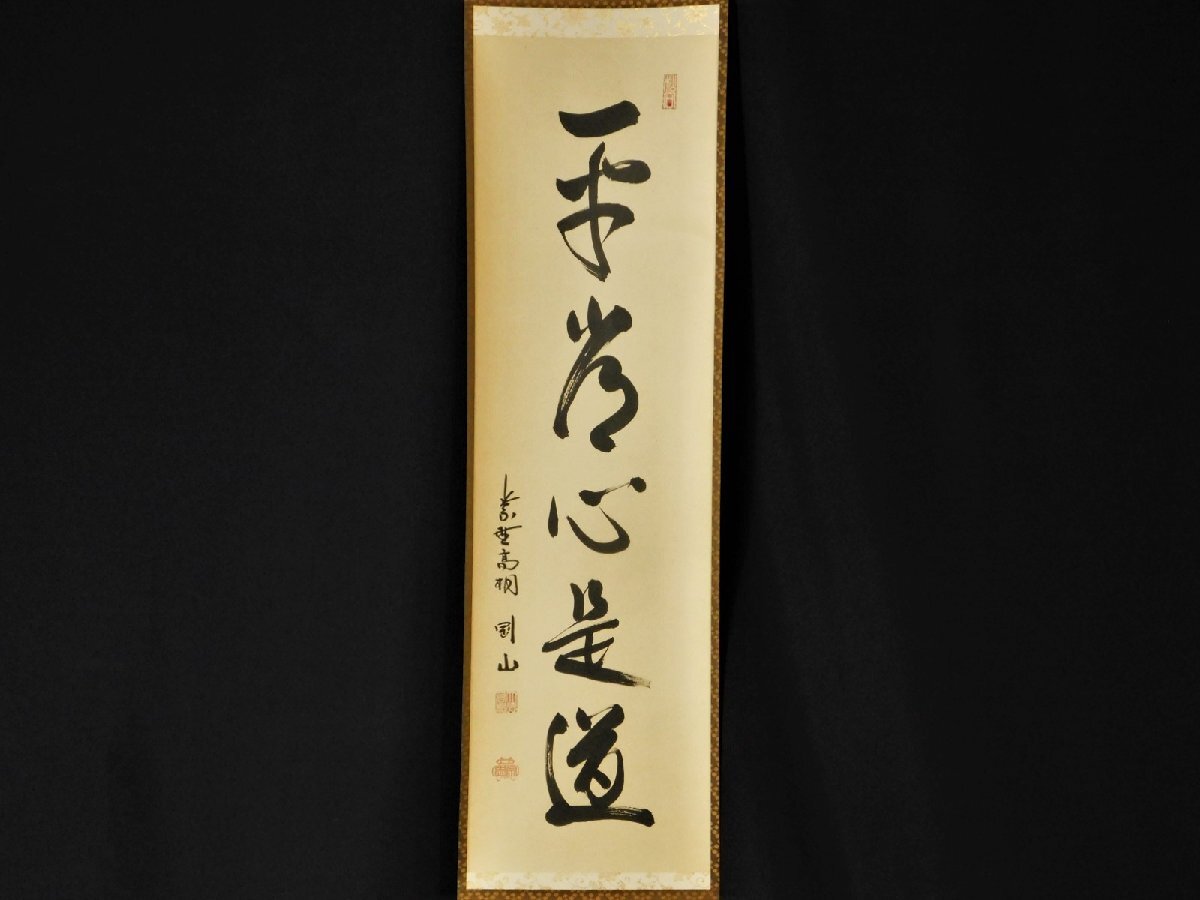 平常心是道
紫野高桐 剛山